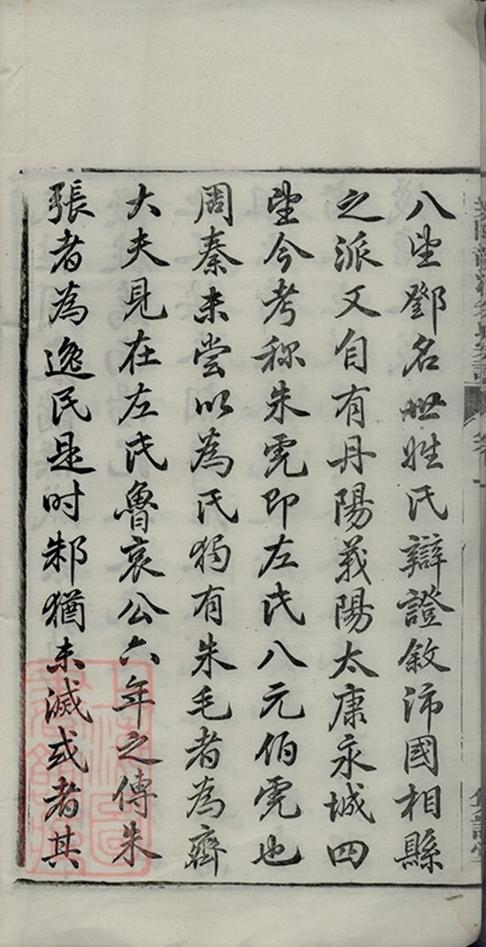 八望鄧名世姓氏辯證敘沛國相縣
之派又自有丹陽義陽太康永城四
望今考稱朱虎即左氏八元伯虎也
周秦未嘗以為氏獨有朱毛者為齊
大夫見在左氏魯哀公六年之傳朱
張者為逸民是时邾猶未滅或者其